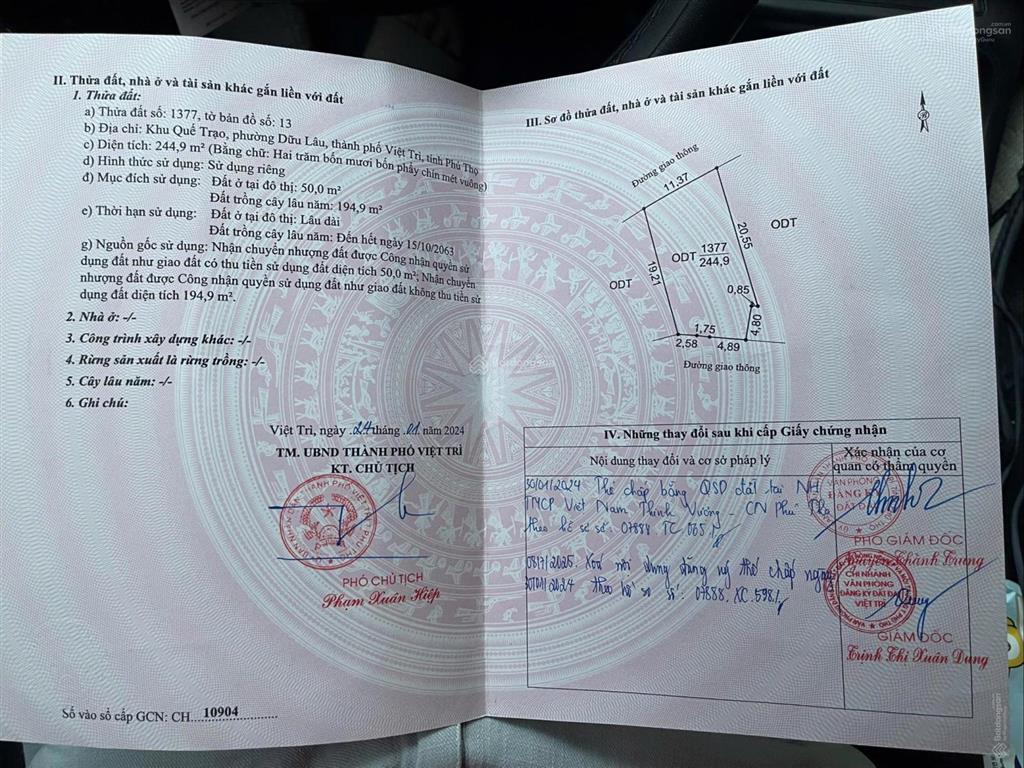 II. Thửa đất, nhà ở và tài sản khác gắn liền với đất
1. Thửa đất:
a) Thửa đất số: 1377, tờ bản đồ số: 13
b) Địa chỉ: Khu Quế Trạo, phường Dữu Lâu, thành phố Việt Trì, tỉnh Phú Thọ
c) Diện tích: 244,9 m² (Bằng chữ: Hai trăm bốn mươi bốn phẩy chín mét vuông)
d) Hình thức sử dụng: Sử dụng riêng
đ) Mục đích sử dụng: Đất ở tại đô thị: 50,0 m²
Đất trồng cây lâu năm: 194,9 m²
e) Thời hạn sử dụng: Đất ở tại đô thị: Lâu dài
Đất trồng cây lâu năm: Đến hết ngày 15/10/2063
g) Nguồn gốc sử dụng: Nhận chuyển nhượng đất được Công nhận quyền sử
dụng đất như giao đất có thu tiền sử dụng đất diện tích 50,0 m²; Nhận chuyển
nhượng đất được Công nhận quyền sử dụng đất như giao đất không thu tiền sử
dụng đất diện tích 194,9 m².
2. Nhà ở: -/-
3. Công trình xây dựng khác: -/-
4. Rừng sản xuất là rừng trồng: -/-
5. Cây lâu năm: -/-
6. Ghi chú:
Việt Trì, ngày 24 tháng 01 năm 2024
TM. UBND THÀNH PHỐ VIỆT TRÌ
KT. CHỦ TỊCH
PHÓ CHỦ TỊCH
Phạm Xuân Hiệp
Số vào sổ cấp GCN: CH 10904
III. Sơ đồ thửa đất, nhà ở và tài sản khác gắn liền với đất
Đường giao thông
11,37
ODT
20,55
ODT 1377
244,9
19,21
ODT
0,85
4,80
1,75
2,58
4,89
Đường giao thông
IV. Những thay đổi sau khi cấp Giấy chứng nhận
Nội dung thay đổi và cơ sở pháp lý
Xác nhận của cơ
quan có thẩm quyền
30/01/2024 Thế chấp bằng QSD đất tại NH
TMCP Việt Nam Thịnh Vượng - CN Phú Thọ
theo hồ sơ số: 07888 TC 065
VĂN PHÒNG
ĐĂNG KÝ
ĐẤT ĐAI
PHÓ GIÁM ĐỐC
Nguyễn Thành Trung
Xoá nội dung đăng ký thế chấp ngày
30/01/2024 theo hồ sơ số: 07888. XC. 598
CHI NHÁNH
VĂN PHÒNG
ĐĂNG KÝ ĐẤT ĐAI
VIỆT TRÌ
GIÁM ĐỐC
Trịnh Thị Xuân Dung
Batdongsan